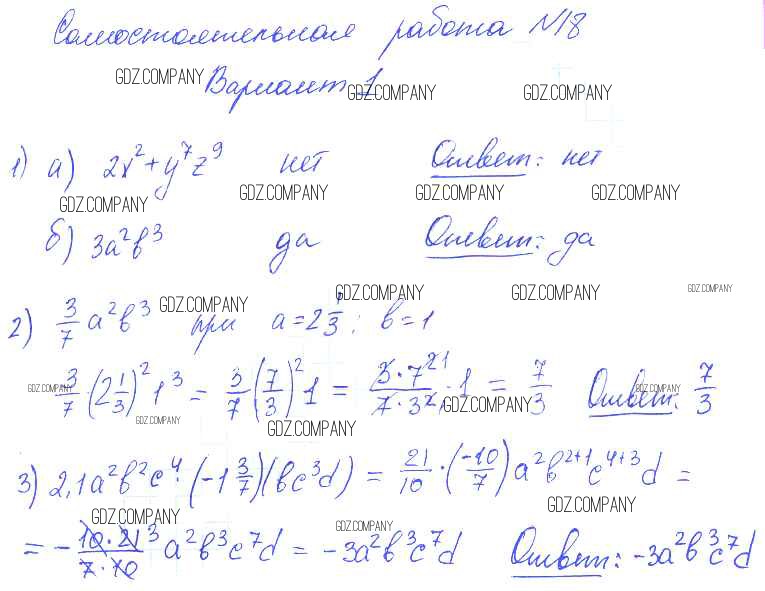 Самостоятельная работа N18
GDZ.COMPANY Вариант 1 GDZ.COMPANY GDZ.COMPANY
1) а) 2x² + y⁷z⁹ нет Ответ: нет
GDZ.COMPANY GDZ.COMPANY GDZ.COMPANY GDZ.COMPANY
б) 3a²b³ да Ответ: да
GDZ.COMPANY GDZ.COMPANY GDZ.COMPANY GDZ.COMPANY
2) 3/7 a²b³ при a = 2 1/3; b = 1
3/7 · (2 1/3)² 1³ = 3/7 (7/3)² 1 = 3 · 7²¹/7 · 3² · 1 = 7/3 Ответ: 7/3
GDZ.COMPANY GDZ.COMPANY GDZ.COMPANY GDZ.COMPANY GDZ.COMPANY
3) 2,1a²b²c⁴ · (-1 3/7)(bc³d) = 21/10 · (-10/7) a²b²⁺¹c⁴⁺³d =
GDZ.COMPANY GDZ.COMPANY GDZ.COMPANY
= - 10 · 21³/7 · 10 a²b³c⁷d = -3a²b³c⁷d Ответ: -3a²b³c⁷d